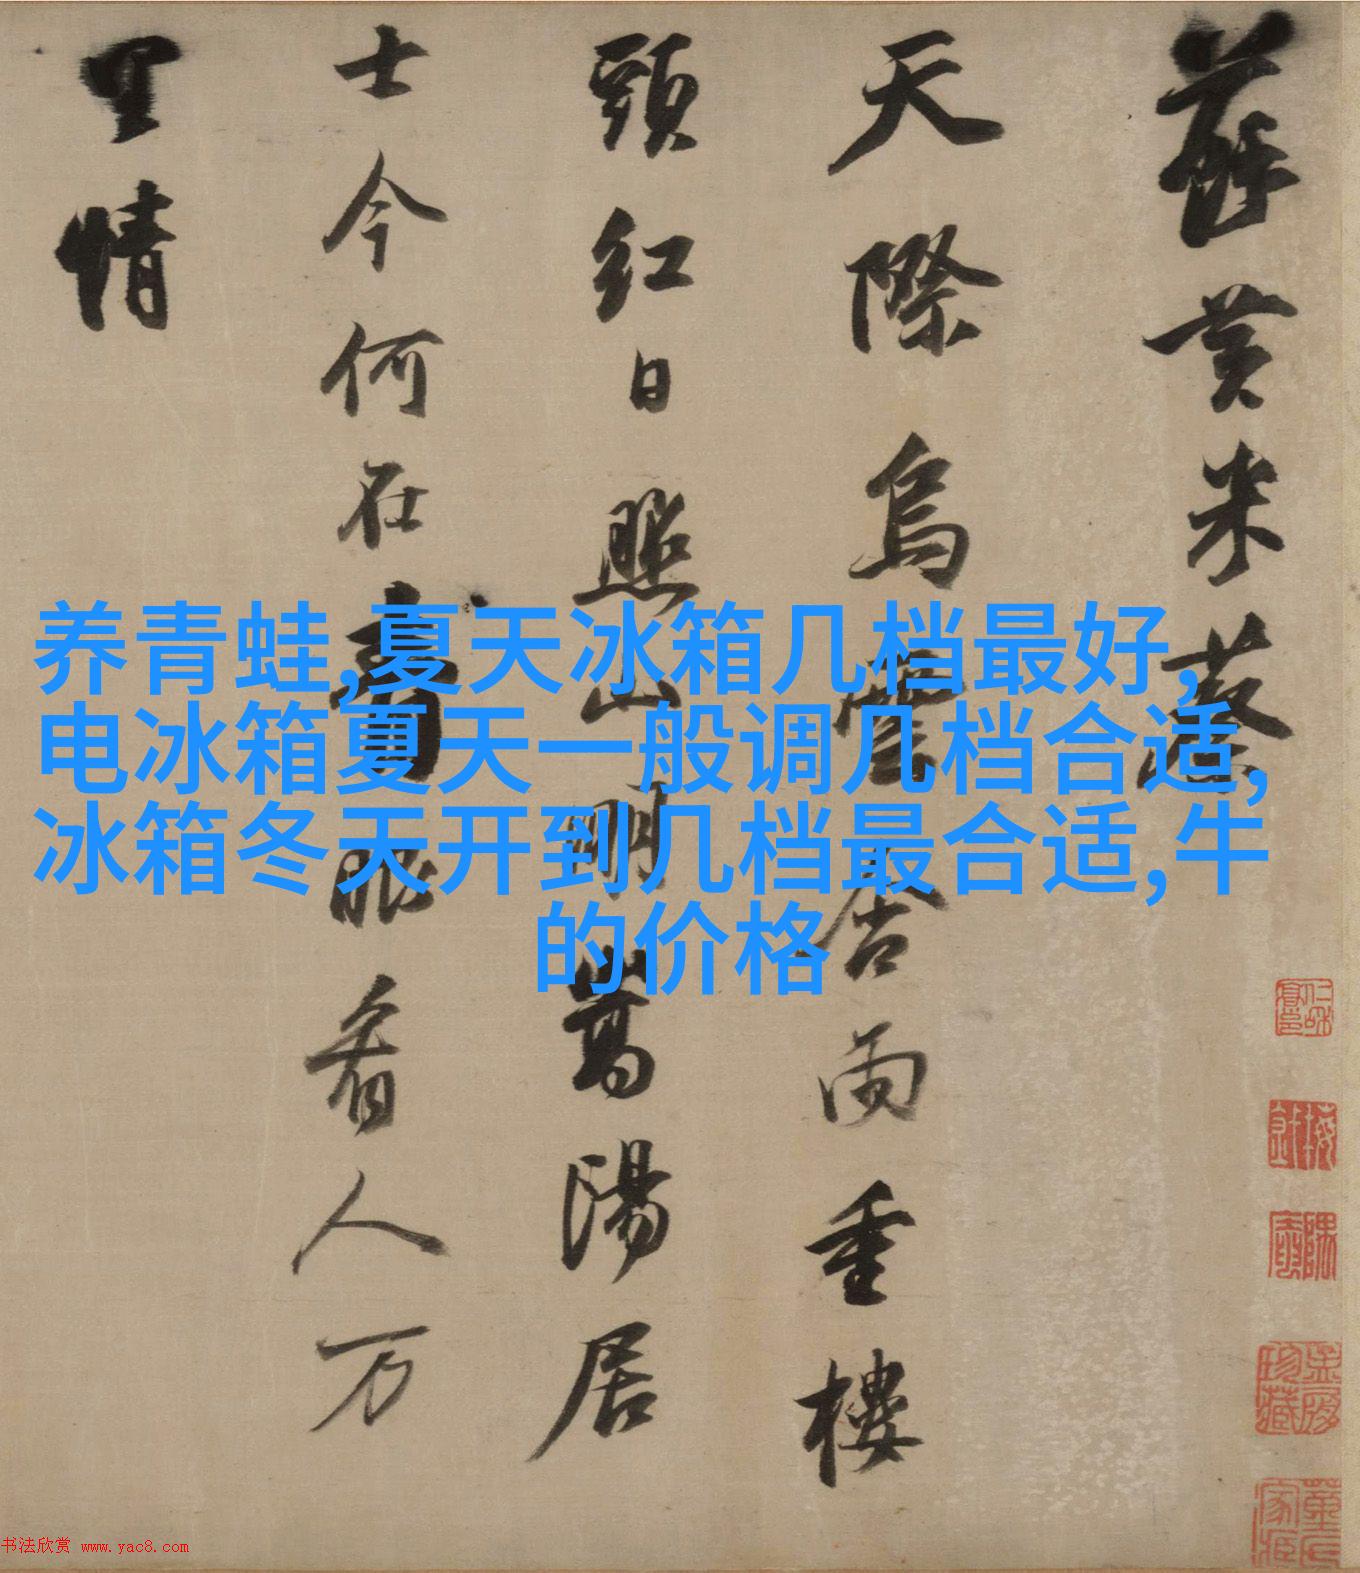 蘇黃米蔡
天際烏雲含雨重樓
頭紅日照山明嵩陽居
士今何在青眼看人万
里情
养青蛙,夏天冰箱几档最好,
电冰箱夏天一般调几档合适,
冰箱冬天开到几档最合适,牛
的价格
书法欣赏 www.yac8.com